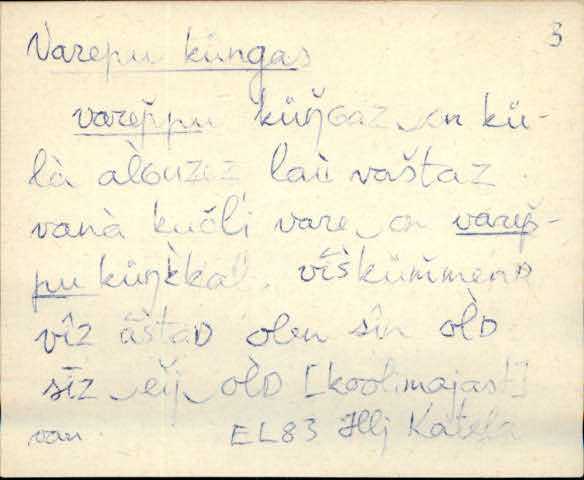 3
Varepu küngas
varep̆pu küŋGaz‿on kü-
là àlGuzez laù vaštaz.
vanà kuòli vare‿on varep̆-
pu küŋ̀kkal. vīšküm̆menD
vîz ăštaD olen sîn olD
sīz‿eij‿olD [koolimajast]
van. EL83 Hlj Kat